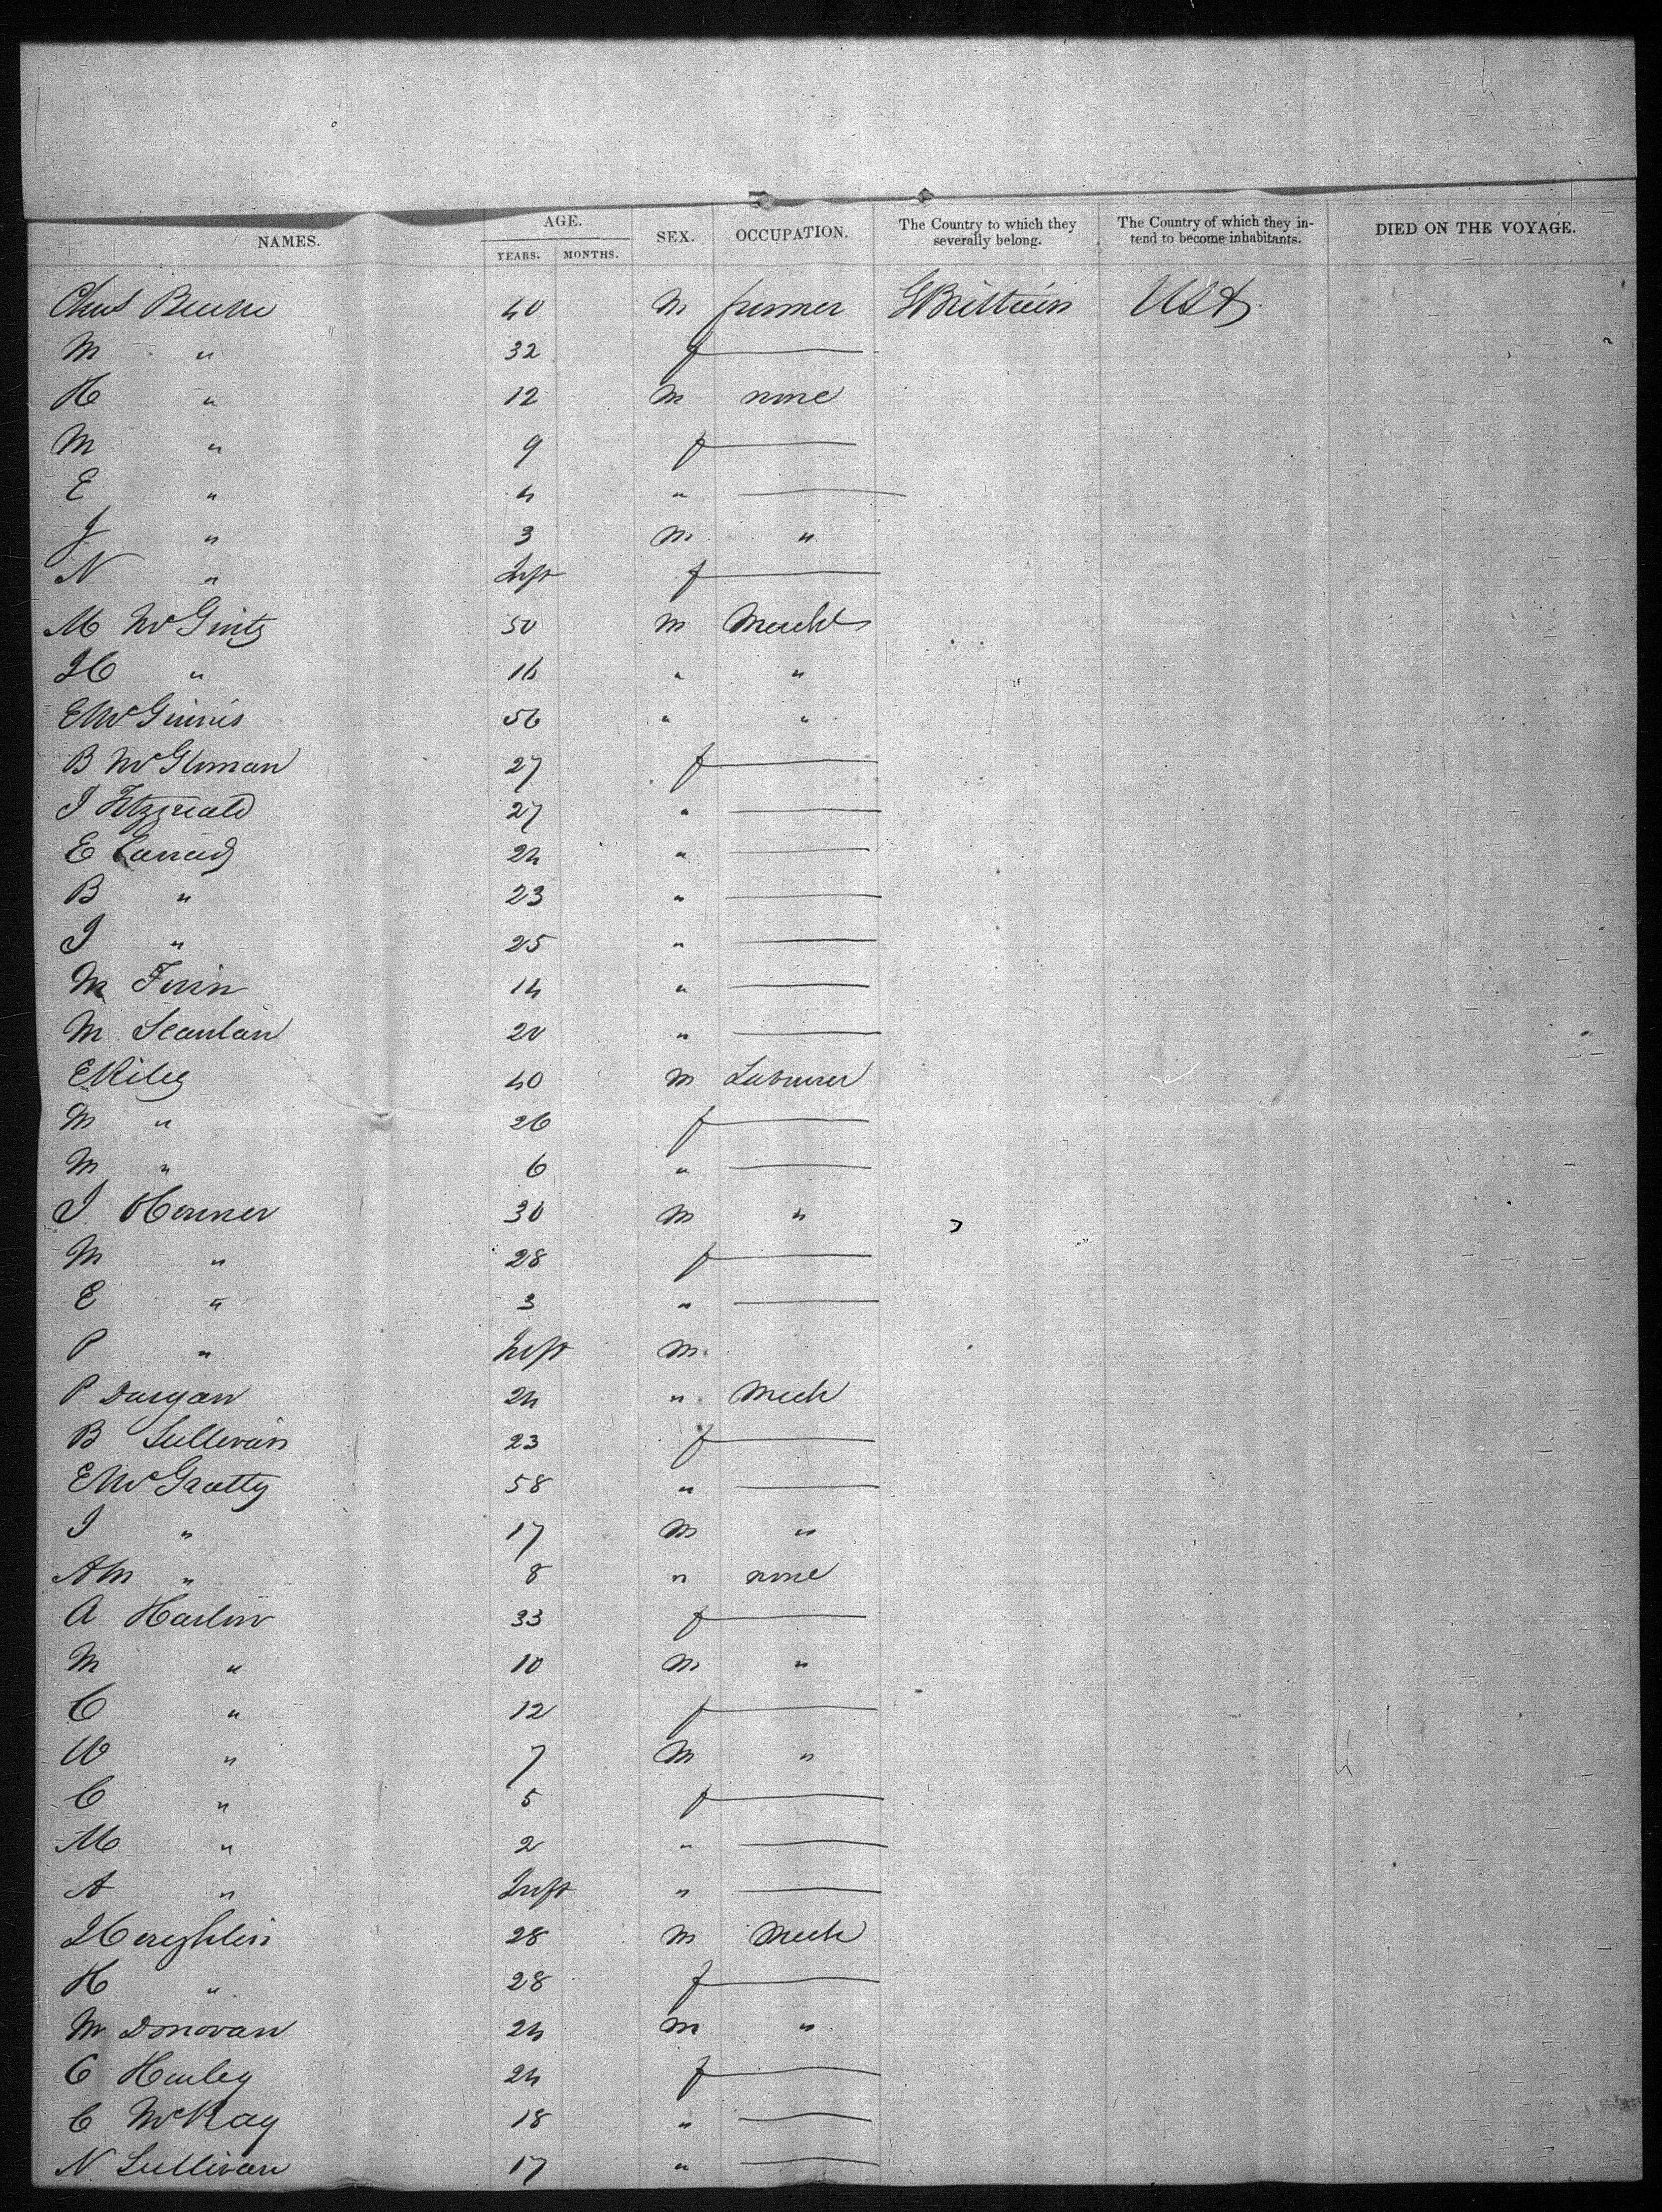 NAMES. AGE. SEX. OCCUPATION. The Country to which they severally belong. The Country of which they intend to become inhabitants. DIED ON THE VOYAGE.
YEARS. MONTHS.
40 M farmer GBrittain USA
M " 32 f
H " 12 M none
M " 9 f
E " 4 "
J " 3 M "
N " Inft f
M McGinty 50 M Mercht
" 16 " "
E McGinnis 56 " "
B 27 f
J Fitzgerald 27 "
E 24 "
B " 23 "
J " 25 "
M Finn 14 "
M Scanlan 20 "
E Riley 40 M Labourer
M " 26 f
M " 6 "
J 30 M "
M " 28 f
E " 3 "
P " Inft M
P Durgan 24 " Mech
B Sullivan 23 f
E McGratty 58 "
J " 17 M "
AM " 8 " none
A 33 f
M " 10 M "
C " 12 f
W " 7 M "
C " 5 f
M " 2 "
A " Inft "
28 M Mech
H " 28 f
M Donovan 24 M "
C Hurley 24 f
C McKay 18 "
N Sullivan 17 "